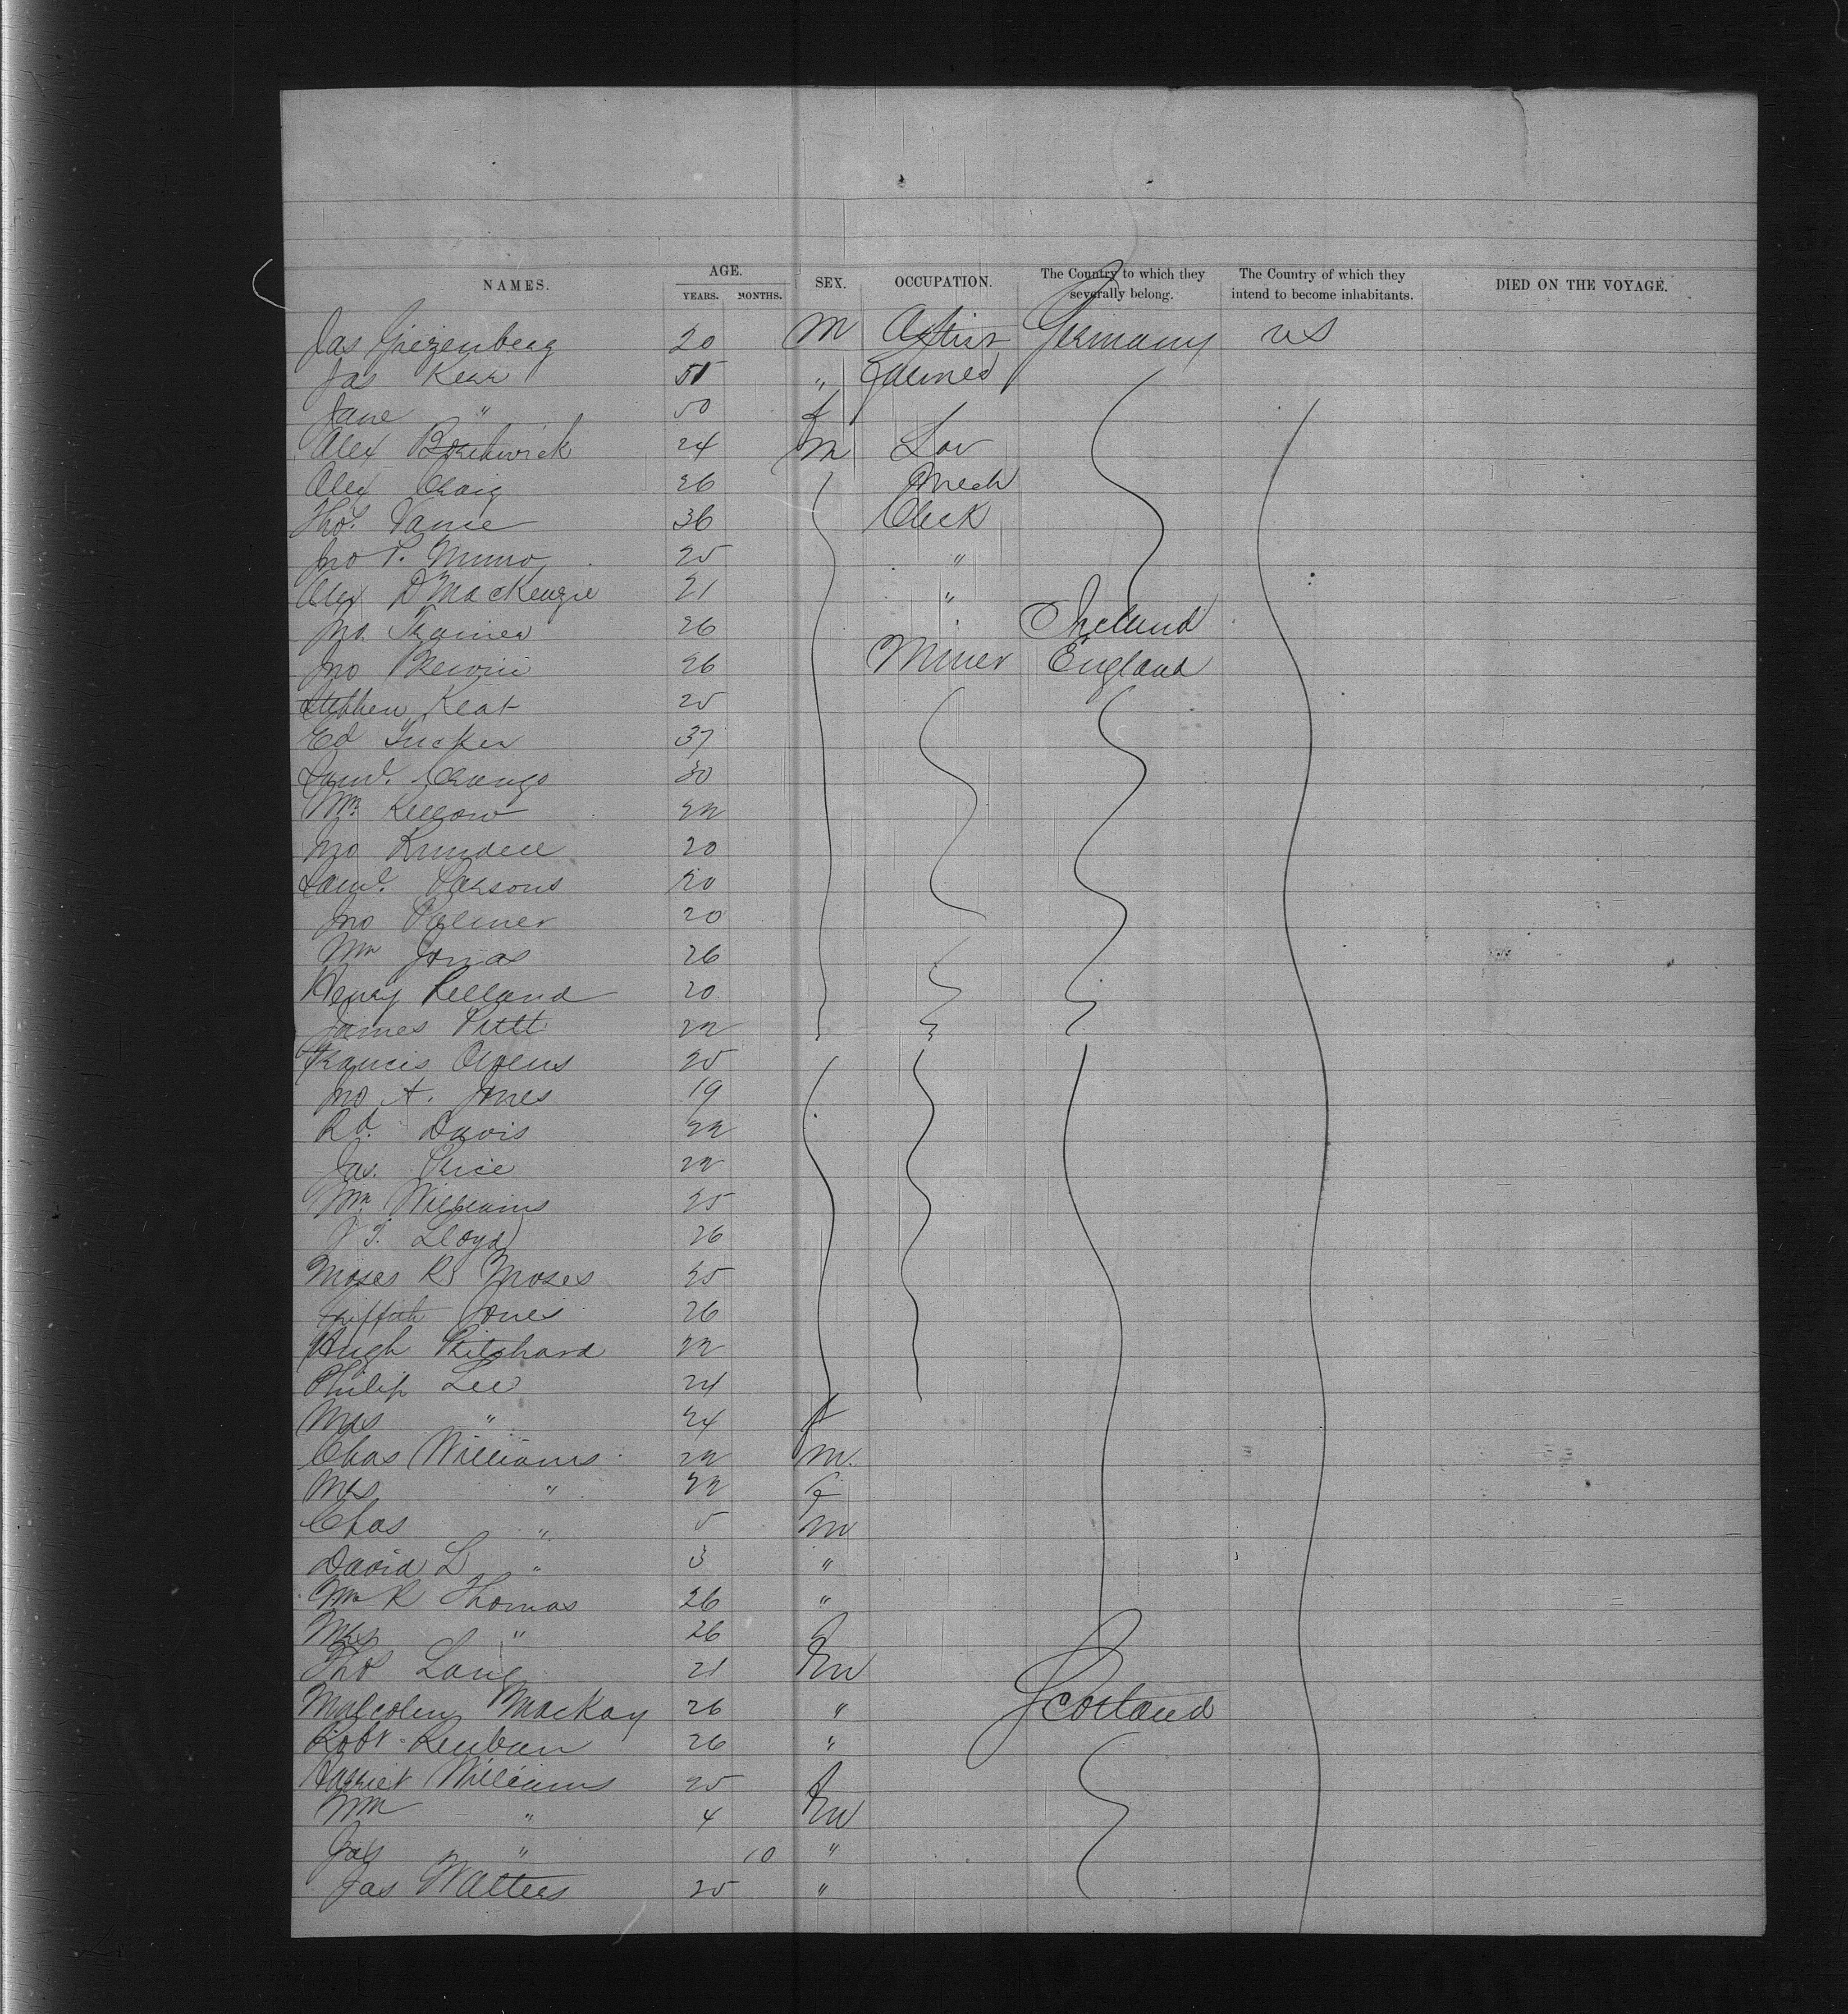 NAMES. AGE. YEARS. MONTHS. SEX. OCCUPATION. The Country to which they severally belong. The Country of which they intend to become inhabitants. DIED ON THE VOYAGE.
Jas Giezenberg 20 M Germany US
Jas Kerr 51 " Farmer
Jane " 50 f
Alex Borthwick 24 M Lav
Alex Craig 26 Mech
Thos. Vance 36 Clerk
Jno P. Munro 25 "
Alex D MacKenzie 21 "
Jno. Trainer 26 " Ireland
Jno 26 Miner England
Stephen Keat 25
Ed Tucker 37
Saml. 30
Wm Kellow 22
Jno Rundell 20
Saml. Parsons 20
Jno Palmer 20
Wm Jonas 26
Henry Kelland 20
James Pittt 22
Francis Owens 25
Jno A. Jones 19
Rd. Davis 22
Jas. Price 22
Wm. Williams 25
J T. Lloyd 26
Moses R Moses 25
Griffith Jones 26
Hugh Pritchard 22
Philip Lee 24
Mrs " 24 f
Chas Williams 22 M
Mrs " 22 f
Chas " 5 M
David L " 3 "
Wm R Thomas 26 "
Mrs " 26 f
Thos Lang 21 M
Malcolm MacKay 26 " Scotland
Robt Reuban 26 "
Harriet Williams 25 f
Wm " 4 M
Jas " 10 "
Jas Watters 25 "